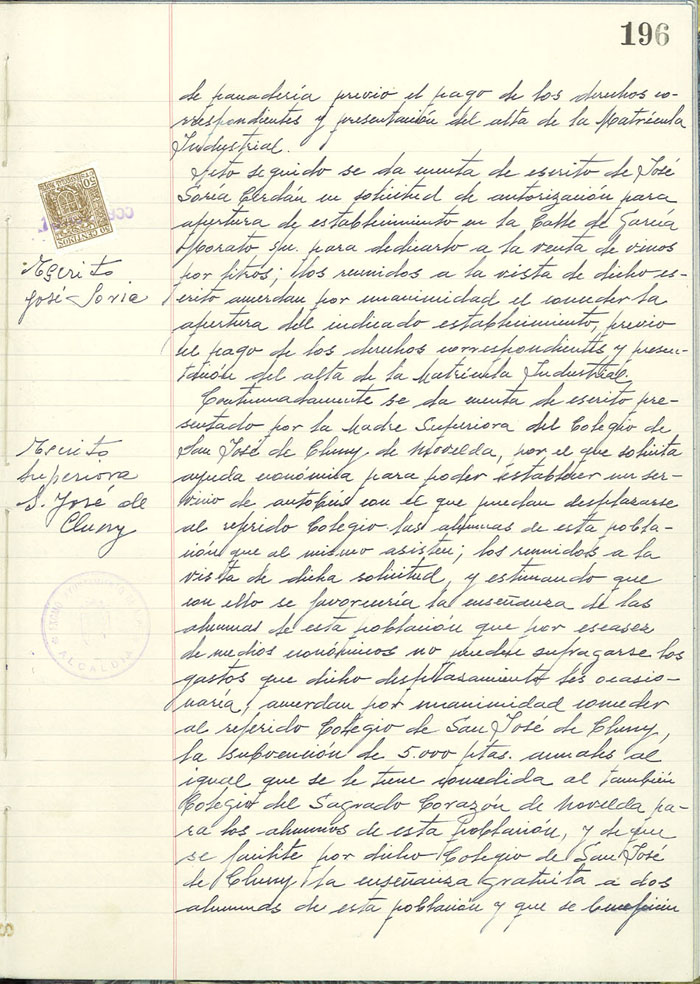 196
de panadería previo el pago de los derechos co-
rrespondientes y presentación del alta de la Matrícula
Industrial.
Acto seguido se da cuenta de escrito de José
Soria Cerdán en solicitud de autorización para
apertura de establecimiento en la Calle de García
Morato s/n. para dedicarlo a la venta de vinos
por litros; los reunidos a la vista de dicho es-
crito acuerdan por unanimidad el conceder la
apertura del indicado establecimiento, previo
el pago de los derechos correspondientes y presen-
tación del alta de la Matrícula Industrial.
Continuadamente se da cuenta de escrito pre-
sentado por la Madre Superiora del Colegio de
San José de Cluny de Novelda, por el que solicita
ayuda económica para poder establecer un ser-
vicio de autobús con el que puedan desplazarse
al referido Colegio las alumnas de esta pobla-
ción que al mismo asisten; los reunidos a la
vista de dicha solicitud, y estimando que
con ello se favorecería la enseñanza de las
alumnas de esta población que por escasez
de medios económicos no pueden sufragarse los
gastos que dicho desplazamiento les ocasio-
naría, acuerdan por unanimidad conceder
al referido Colegio de San José de Cluny,
la subvención de 5.000 ptas. anuales al
igual que se le tiene concedida al también
Colegio del Sagrado Corazón de Novelda pa-
ra los alumnos de esta población, y de que
se facilite por dicho Colegio de San José
de Cluny la enseñanza gratuita a dos
alumnas de esta población y que se beneficien
50 CENTIMOS
Escrito
José Soria
Escrito
Superiora
S. José de
Cluny
ALCALDIA